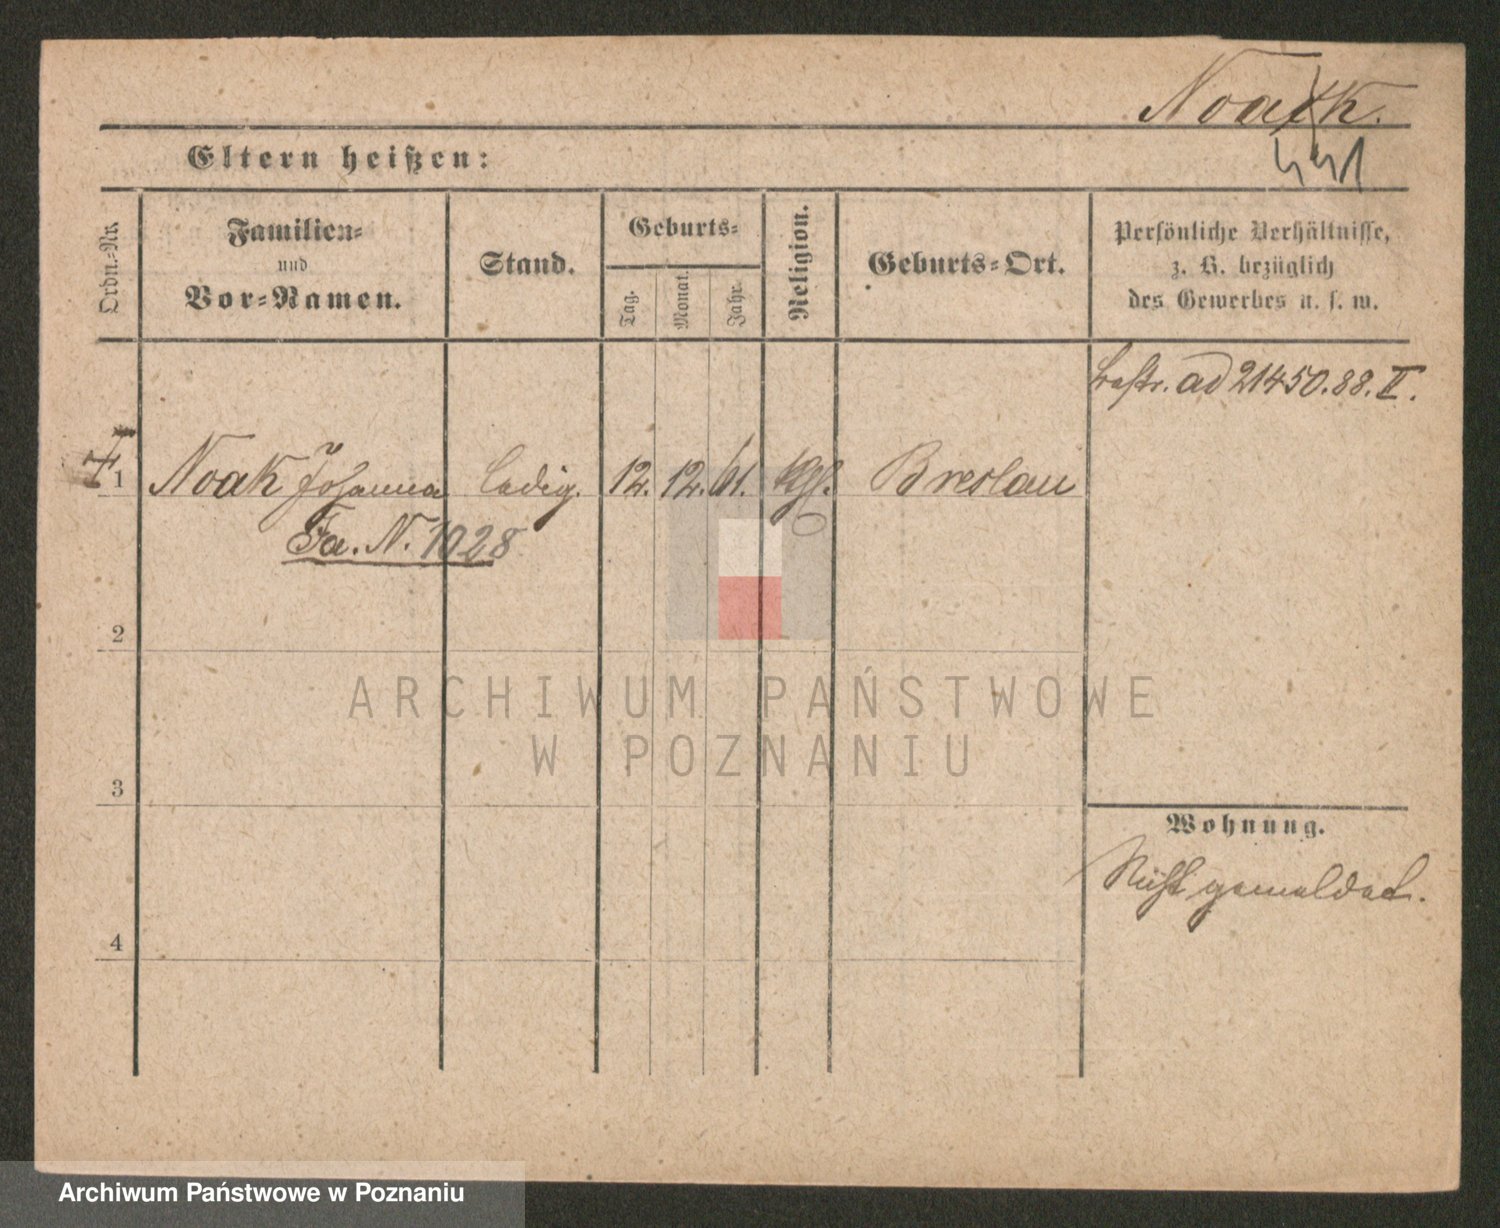 Noack.
Eltern heißen:
Ordn.-Nr.
Familien-
und
Vor-Namen.
Stand.
Geburts-
Tag.
Monat.
Jahr.
Religion.
Geburts-Ort.
Persönliche Verhältnisse,
z. B. bezüglich
des Gewerbes u. s. w.
ad 21450.88.II.
1 Noak Johanna ledig. 12. 12. 61. Breslau
Fa. N. 1028
2
3
4
Wohnung.
Nicht gemeldet.
ARCHIWUM PAŃSTWOWE
W POZNANIU
Archiwum Państwowe w Poznaniu